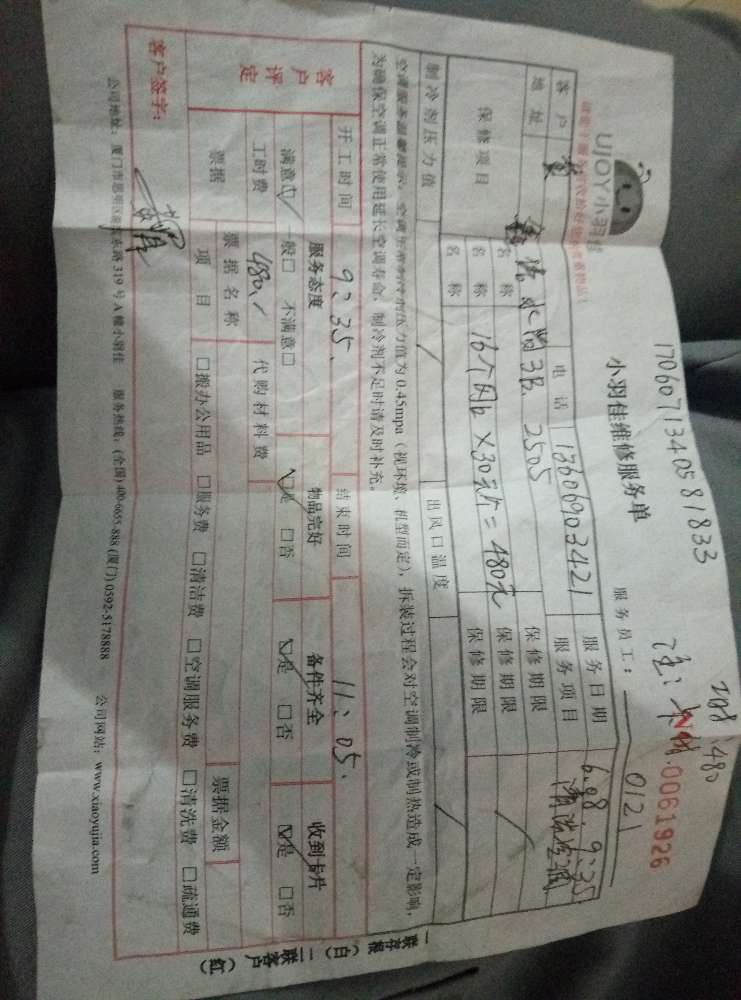 1706071340581833
UJOY小羽佳
小羽佳维修服务单
No.0061926
服务员工: 0121
客户 黄 电话 13606903421 服务日期 6.08. 9:35
地址 水岸 3B. 2505 服务项目 清洗空调
保修项目 名称 保修期限
名称 保修期限
名称 16个 ×30元/ = 480元 保修期限
制冷剂压力值 出风口温度
空调压力值为 0.45mpa(视环境、机型而定),拆装过程会对空调制冷或制热造成一定影响,
为确保空调正常使用延长空调寿命,制冷剂不足时请及时补充。
客户评定
开工时间 9:35. 结束时间 11:05.
服务态度 物品完好 备件齐全 收到卡片
满意☑ 一般□ 不满意□ ☑是 □否 ☑是 □否 ☑是 □否
工时费 480./ 代购材料费
票据 票据名称 票据金额
项目 □搬办公用品 □服务费 □清洁费 □空调服务费 □清洗费 □疏通费
客户签字:
公司地址:厦门市思明区 东路 319 号 A 幢小羽佳 服务热线:(全国)400-6655-888 (厦门) 0592-5178888 公司网站:www.xiaoyujia.com
一联存根(白) 二联客户(红)